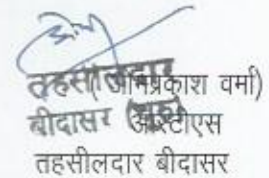 तहसीलदार
(ओमप्रकाश वर्मा)
बीदासर (चूरू)
आरटीएस
तहसीलदार बीदासर